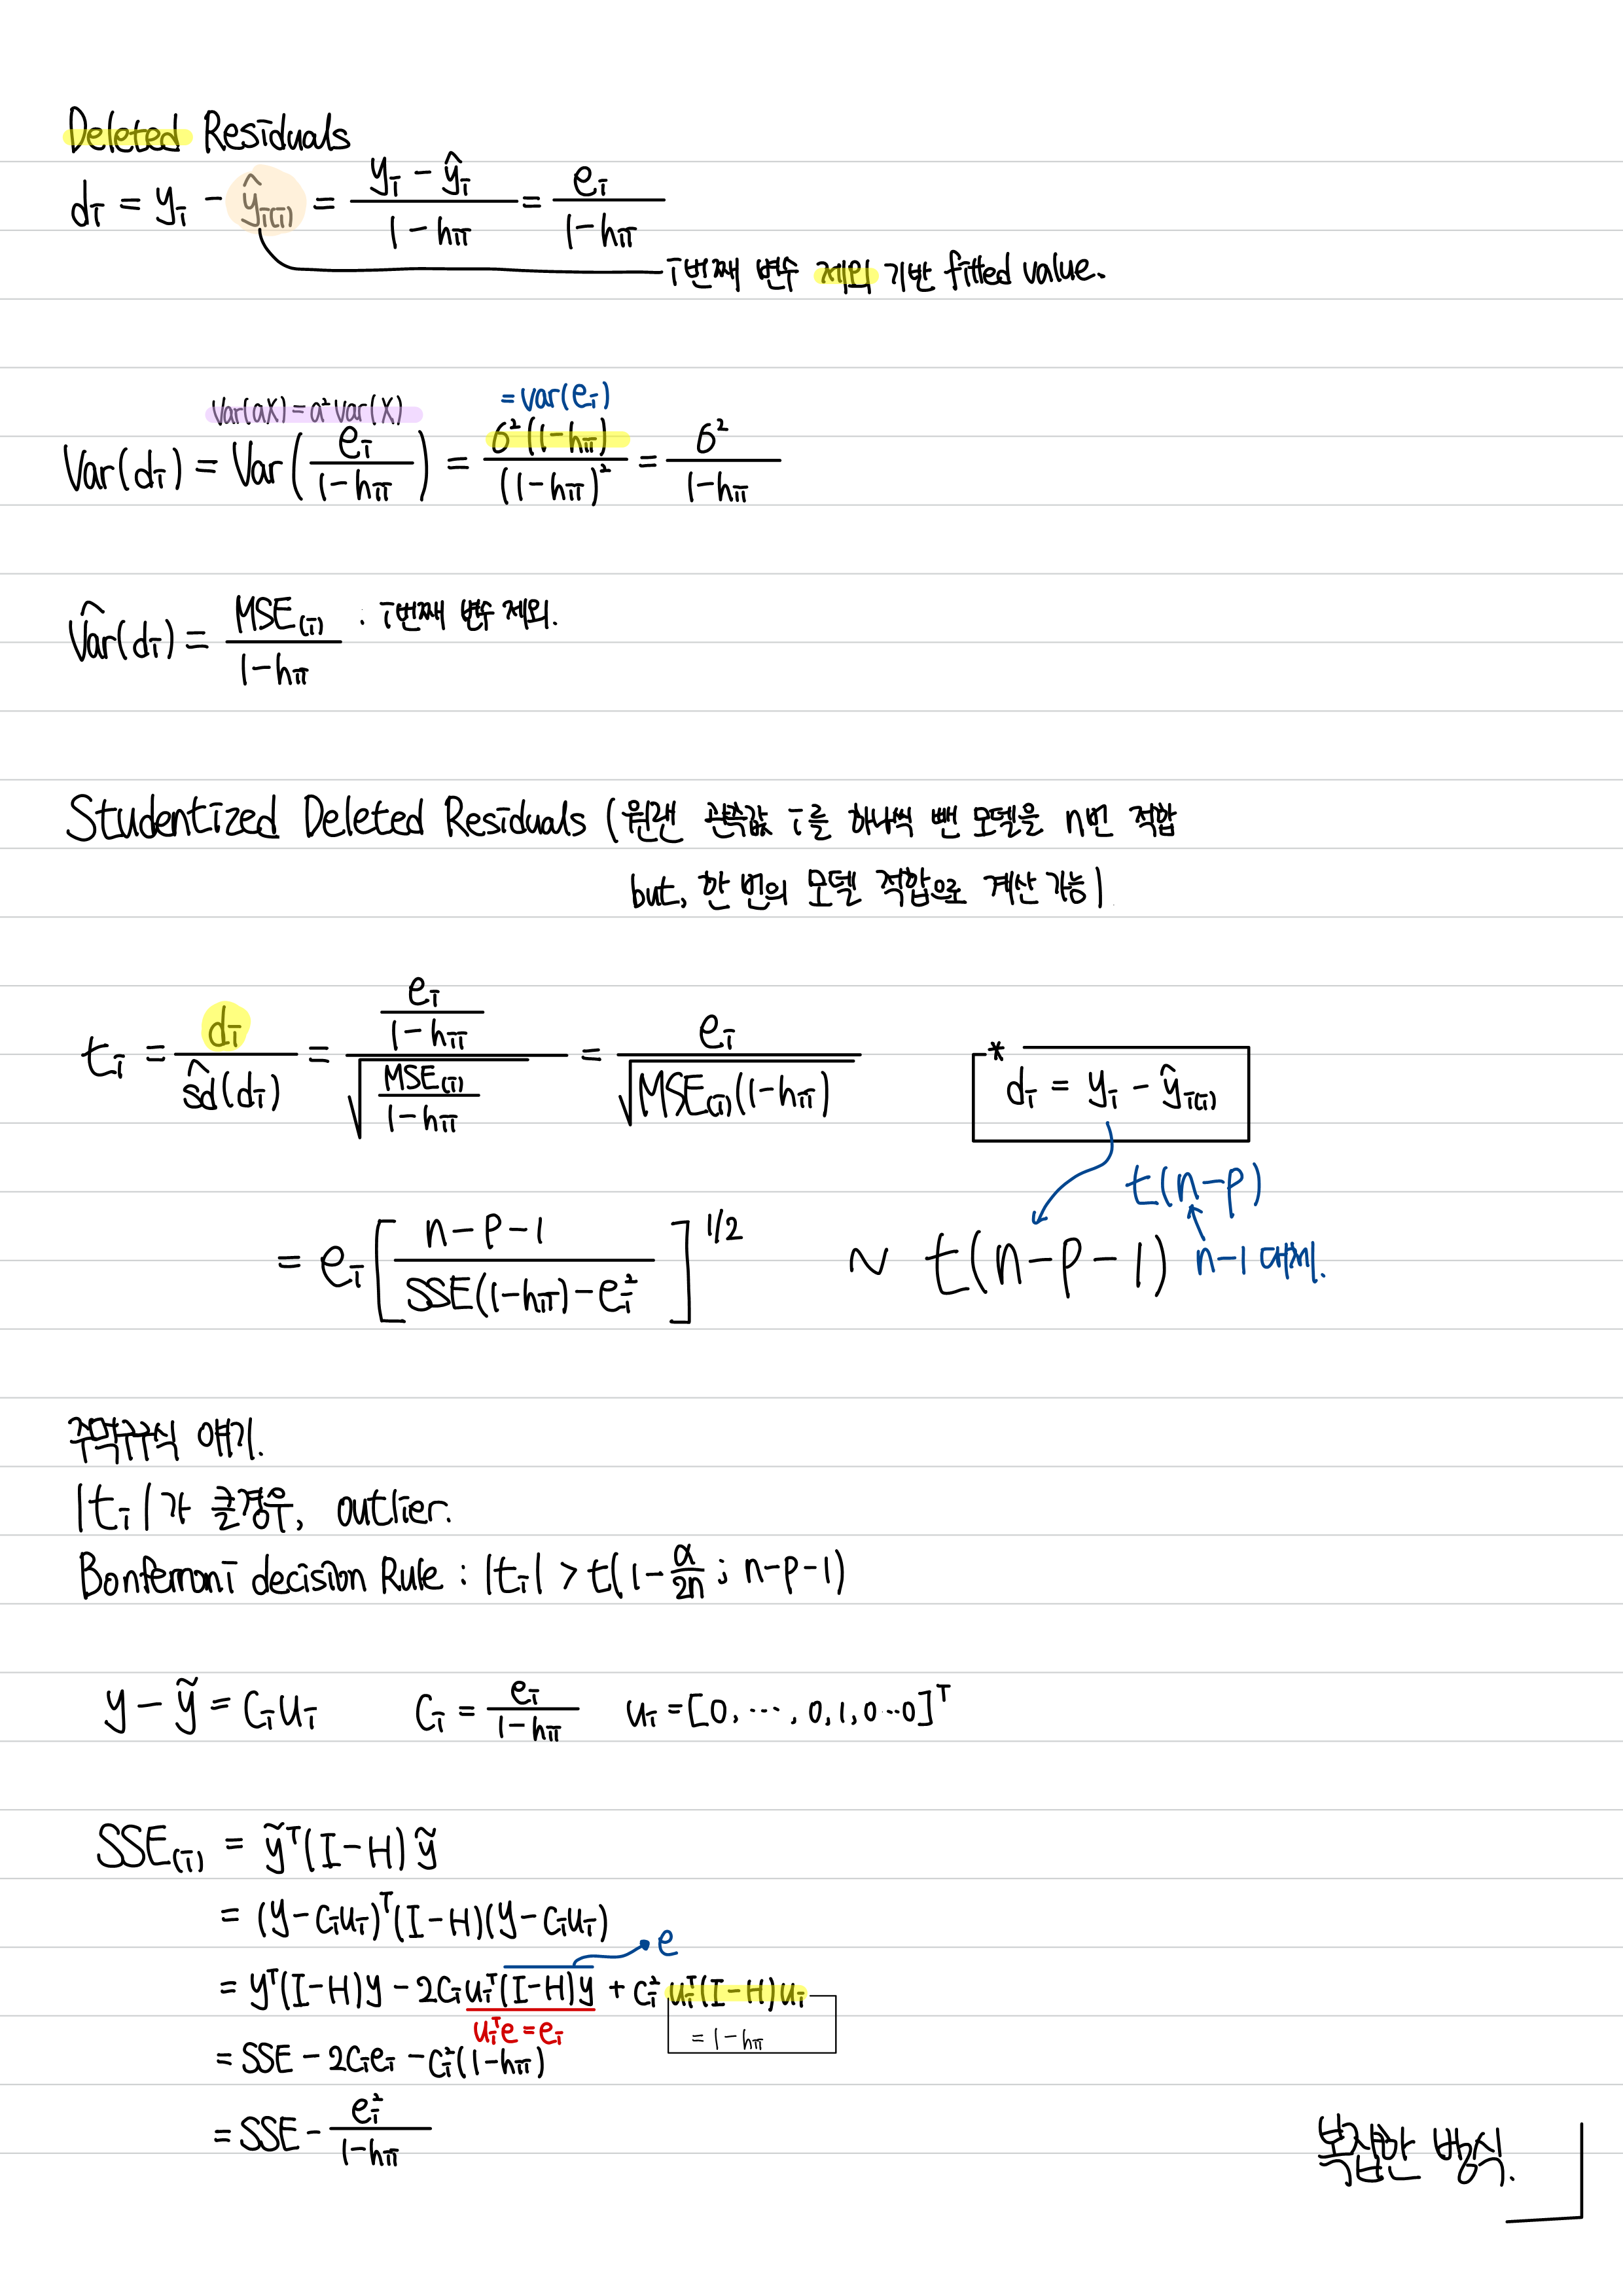 Deleted Residuals
dᵢ = yᵢ − ŷᵢ₍ᵢ₎ = (yᵢ − ŷᵢ)/(1 − hᵢᵢ) = eᵢ/(1 − hᵢᵢ)
i번째 변수 제외 기반 fitted value.
Var(aX) = a² Var(X)
= var(eᵢ)
Var(dᵢ) = Var(eᵢ/(1 − hᵢᵢ)) = σ²(1 − hᵢᵢ)/(1 − hᵢᵢ)² = σ²/(1 − hᵢᵢ)
V̂ar(dᵢ) = MSE₍ᵢ₎/(1 − hᵢᵢ) : i번째 변수 제외.
Studentized Deleted Residuals (원랜 관측값 i를 하나씩 뺀 모델을 n번 적합
but, 한 번의 모델 적합으로 계산 가능)
tᵢ = dᵢ/ŝd(dᵢ) = (eᵢ/(1 − hᵢᵢ))/√(MSE₍ᵢ₎/(1 − hᵢᵢ)) = eᵢ/√(MSE₍ᵢ₎(1 − hᵢᵢ))
* dᵢ = yᵢ − ŷᵢ₍ᵢ₎
t(n−p)
= eᵢ[(n−p−1)/(SSE(1−hᵢᵢ)−eᵢ²)]^1/2 ~ t(n−p−1)
n−1 대체.
주먹구구식 얘기.
|tᵢ|가 클경우, outlier.
Bonferroni decision Rule : |tᵢ| > t(1 − α/2n ; n−p−1)
y − ỹ = cᵢuᵢ cᵢ = eᵢ/(1−hᵢᵢ) uᵢ = [0, ⋯, 0, 1, 0⋯0]ᵀ
SSE₍ᵢ₎ = ỹᵀ(I−H)ỹ
= (y − cᵢuᵢ)ᵀ(I−H)(y − cᵢuᵢ)
e
= yᵀ(I−H)y − 2cᵢuᵢᵀ(I−H)y + cᵢ²uᵢᵀ(I−H)uᵢ
uᵢᵀe = eᵢ
= 1 − hᵢᵢ
= SSE − 2cᵢeᵢ − cᵢ²(1−hᵢᵢ)
= SSE − eᵢ²/(1−hᵢᵢ)
복잡한 방식.